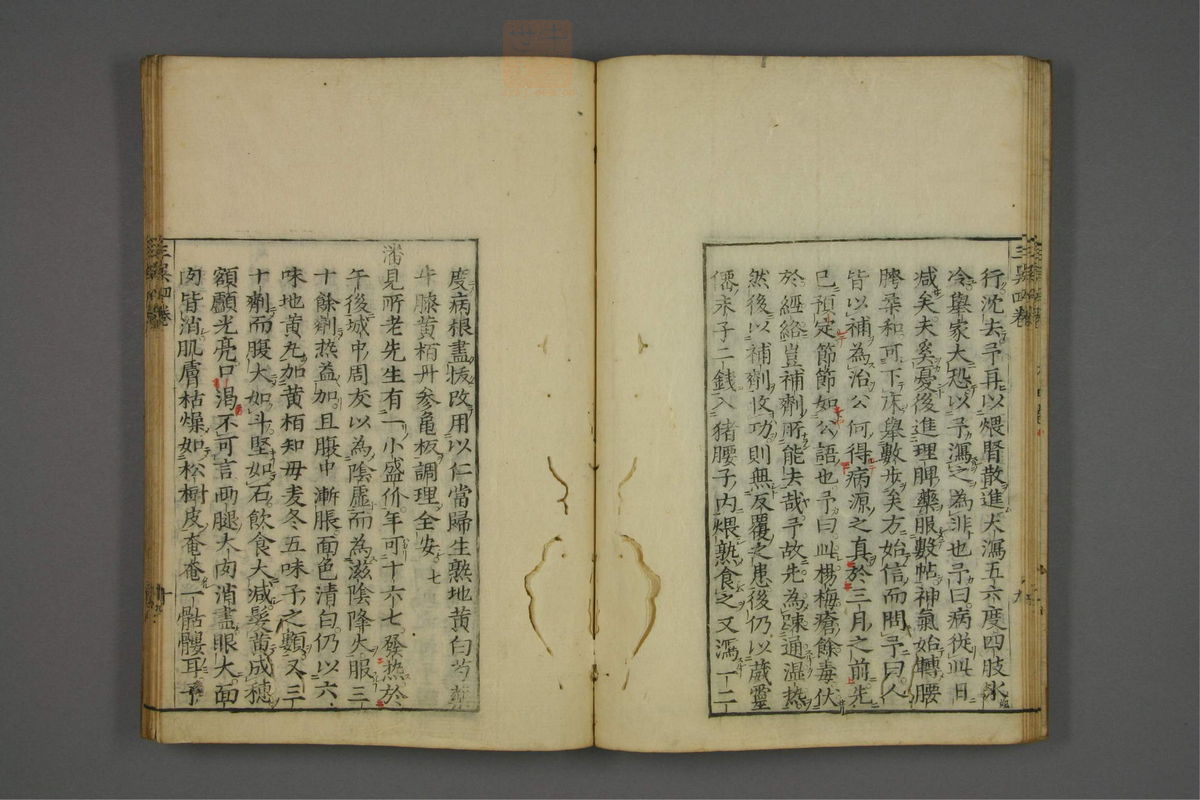 行沈去予再以煨腎散進大瀉五六度四肢氷
冷舉家大恐以予瀉之為非也予曰病從此日
減矣夫奚憂後進理脾藥服數帖神氣始轉腰
胯柔和可下床舉數步矣方始信而問予曰人
皆以補為治公何得病源之真於三月之前先
已預定節節如公語也予曰此楊梅瘡餘毒伏
於經絡豈補劑所能去哉予故先為疎通濕熱
然後以補劑收功則無反覆之患後仍以葳靈
僊末子二錢入猪腰子內煨熟食之又瀉一二
度病根盡拔改用以仁當歸生熟地黃白芍
牛膝黃栢丹參龜板調理全安
潘見所老先生有一小盛价年可十六七發熱於
午後城中周友以為陰虛而為滋陰降火服三
十餘劑熱益加且腹中漸脹面色清白仍以六
味地黃丸加黃栢知母麦冬五味子之類又三
十劑而腹大如斗堅如石飲食大減髮黃成穗
額顱光亮口渴不可言兩腿大肉消盡眼大面
肉皆消肌膚枯燥如松樹皮奄奄一骷髏耳予
三吳四卷
九
三吳四卷
十